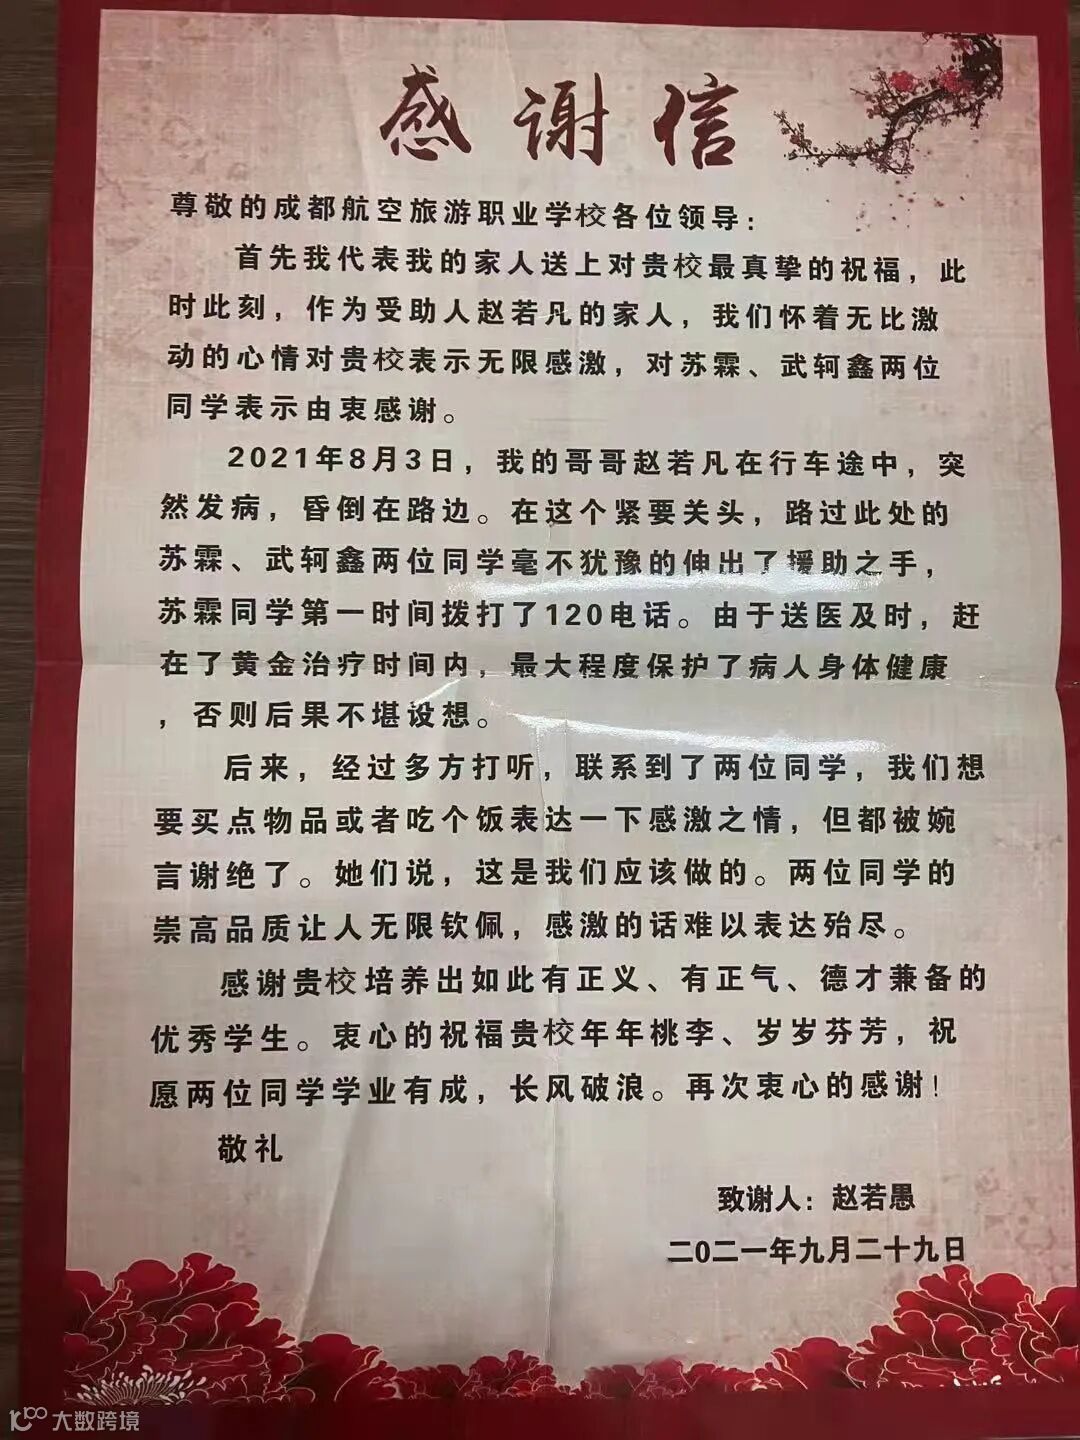 感谢信
尊敬的成都航空旅游职业学校各位领导：
首先我代表我的家人送上对贵校最真挚的祝福，此
时此刻，作为受助人赵若凡的家人，我们怀着无比激
动的心情对贵校表示无限感激，对苏霖、武轲鑫两位
同学表示由衷感谢。
2021年8月3日，我的哥哥赵若凡在行车途中，突
然发病，昏倒在路边。在这个紧要关头，路过此处的
苏霖、武轲鑫两位同学毫不犹豫的伸出了援助之手，
苏霖同学第一时间拨打了120电话。由于送医及时，赶
在了黄金治疗时间内，最大程度保护了病人身体健康
，否则后果不堪设想。
后来，经过多方打听，联系到了两位同学，我们想
要买点物品或者吃个饭表达一下感激之情，但都被婉
言谢绝了。她们说，这是我们应该做的。两位同学的
崇高品质让人无限钦佩，感激的话难以表达殆尽。
感谢贵校培养出如此有正义、有正气、德才兼备的
优秀学生。衷心的祝福贵校年年桃李、岁岁芬芳，祝
愿两位同学学业有成，长风破浪。再次衷心的感谢！
敬礼
致谢人：赵若愚
二〇二一年九月二十九日
大数跨境